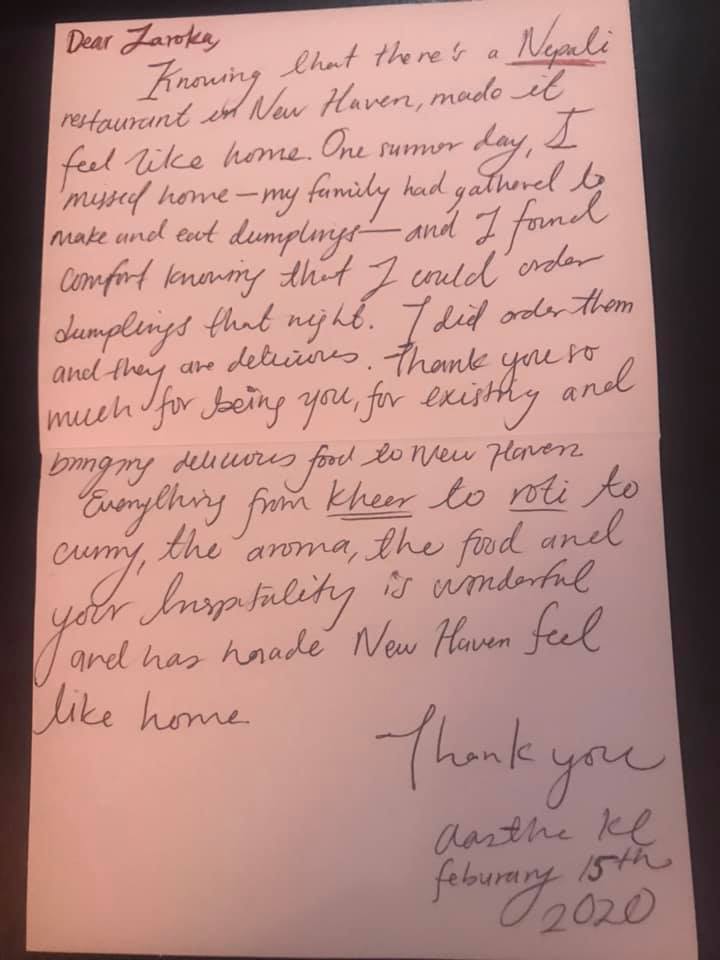 Dear Zaroka,
Knowing that there's a Nepali
restaurant in New Haven, made it
feel like home. One summer day, I
missed home—my family had gathered to
make and eat dumplings—and I found
comfort knowing that I could order
dumplings that night. I did order them
and they are delicious. Thank you so
much for being you, for existing and
bringing delicious food to New Haven.
Everything from kheer to roti to
curry, the aroma, the food and
your hospitality is wonderful
and has made New Haven feel
like home.
Thank you
Aastha KC
feburary 15th
2020